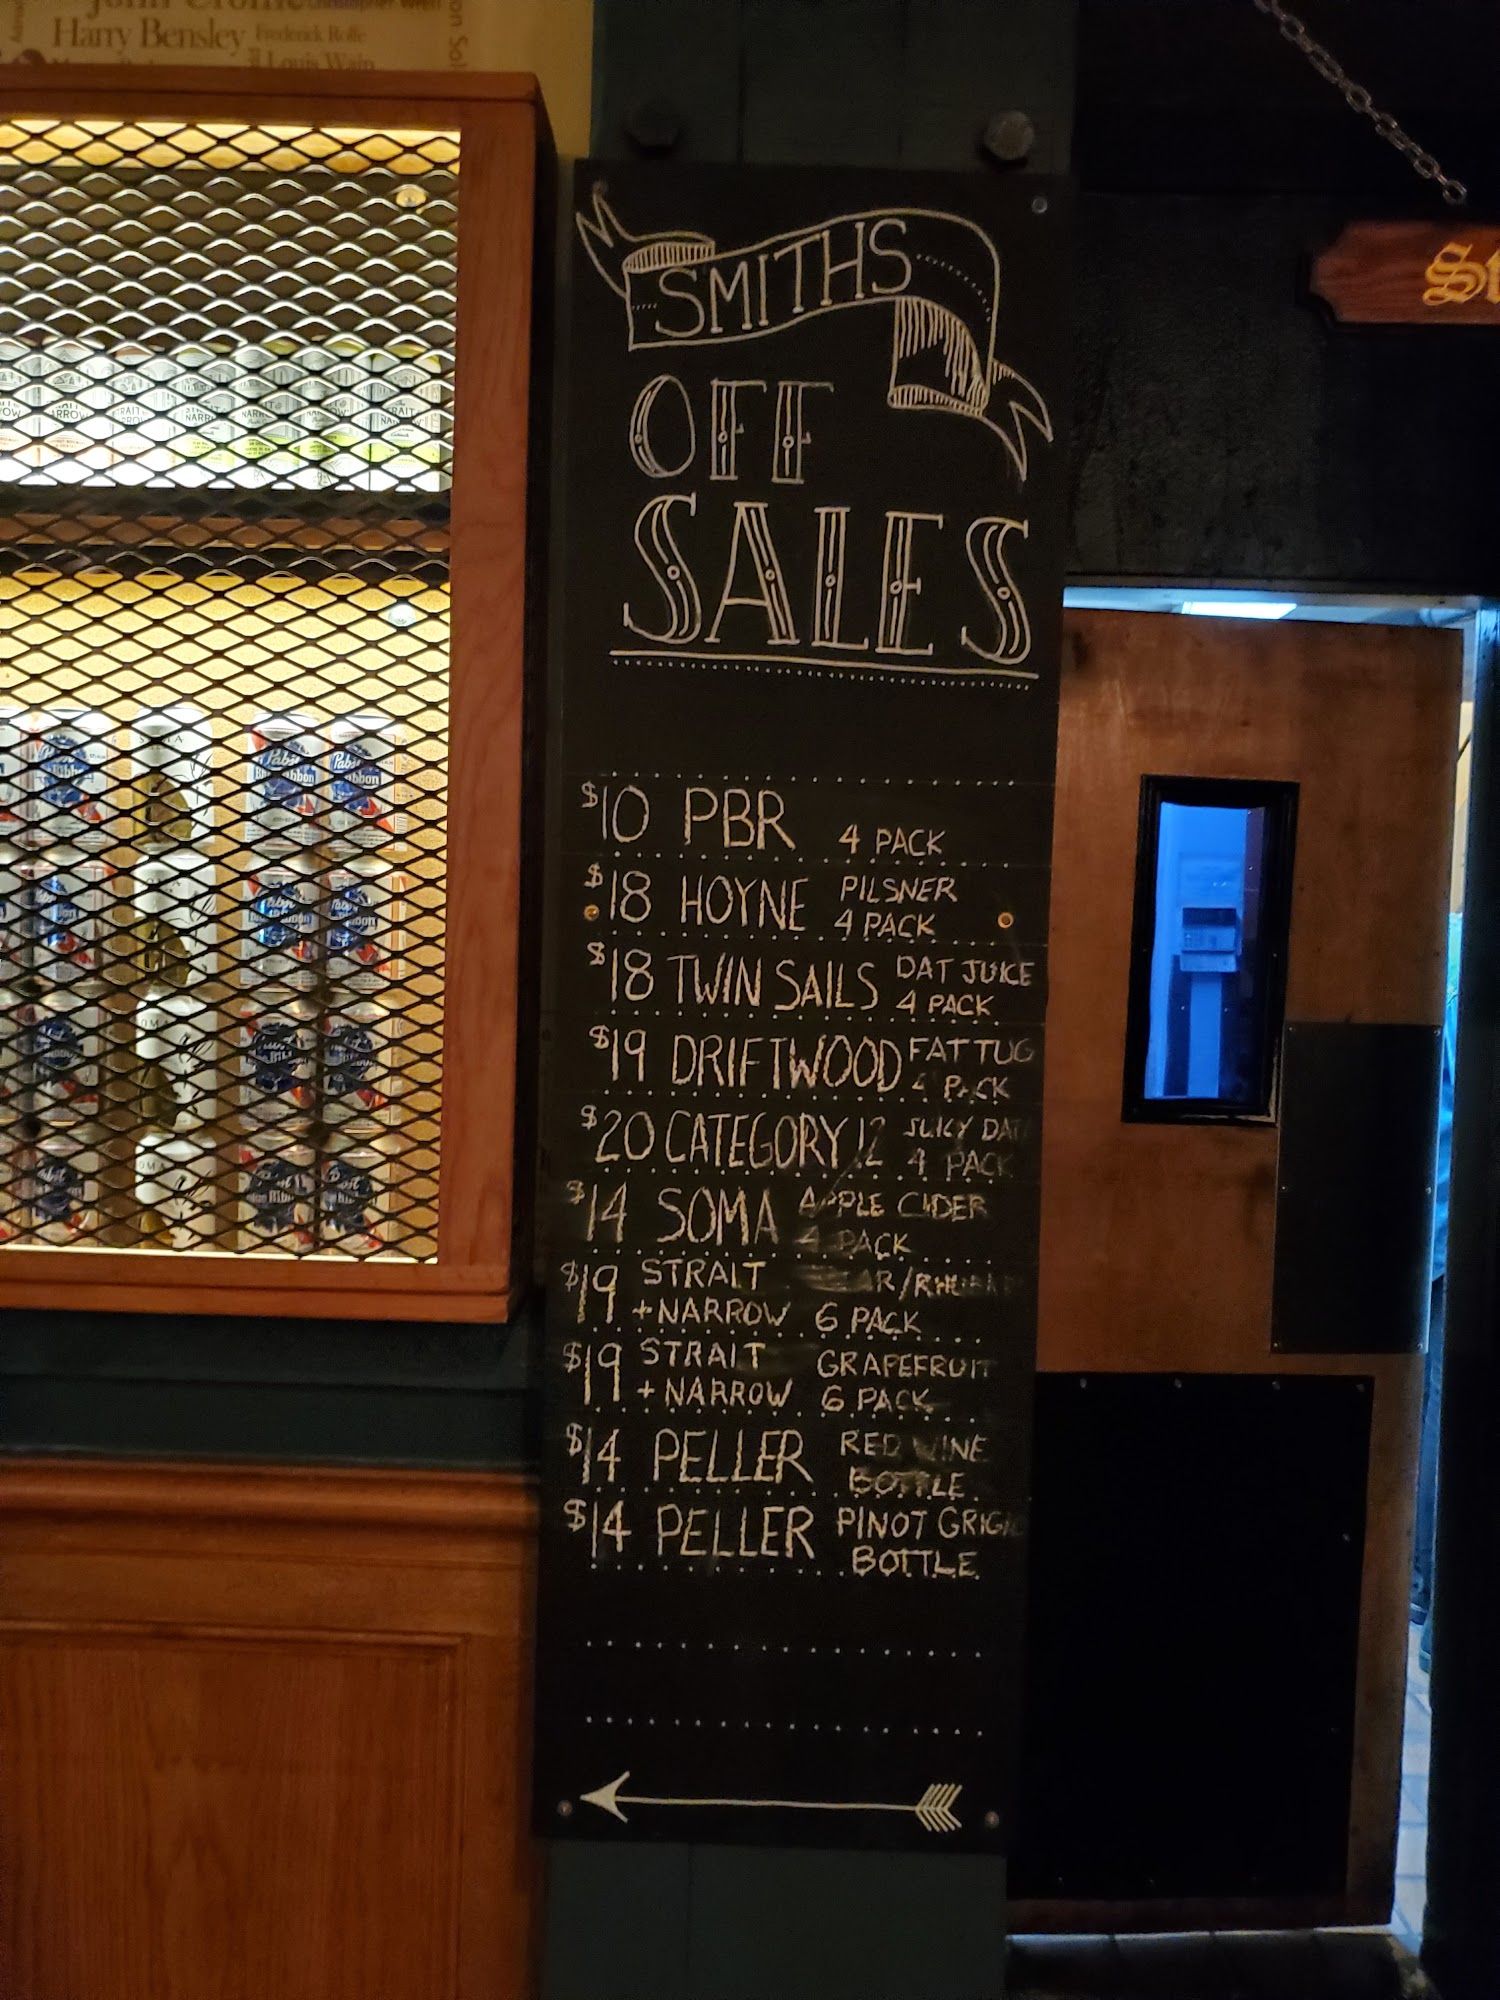 Harry Bensley Frederick Rolfe
Louis Wain
SMITHS
OFF
SALES
St
$10 PBR 4 PACK
$18 HOYNE PILSNER
4 PACK
$18 TWIN SAILS DAT JUICE
4 PACK
$19 DRIFTWOOD FAT TUG
4 PACK
$20 CATEGORY 12 JUICY DATA
4 PACK
$14 SOMA APPLE CIDER
4 PACK
$19 STRAIT
+NARROW 6 PACK
$19 STRAIT GRAPEFRUIT
+NARROW 6 PACK
$14 PELLER RED WINE
BOTTLE
$14 PELLER PINOT GRIGIO
BOTTLE
Pabst
Blue Ribbon
SOMA